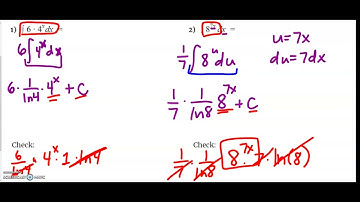 1) ∫ 6 · 4ˣ dx =
6 ∫ 4ˣ dx
6 · 1/ln4 · 4ˣ + C
Check:
6/ln4 · 4ˣ · 1 · ln4
2) ∫ 8⁷ˣ dx =
u = 7x
du = 7dx
1/7 ∫ 8ᵘ du
1/7 · 1/ln8 8⁷ˣ + C
Check:
1/7 · 1/ln8 8⁷ˣ · 7 · ln(8)